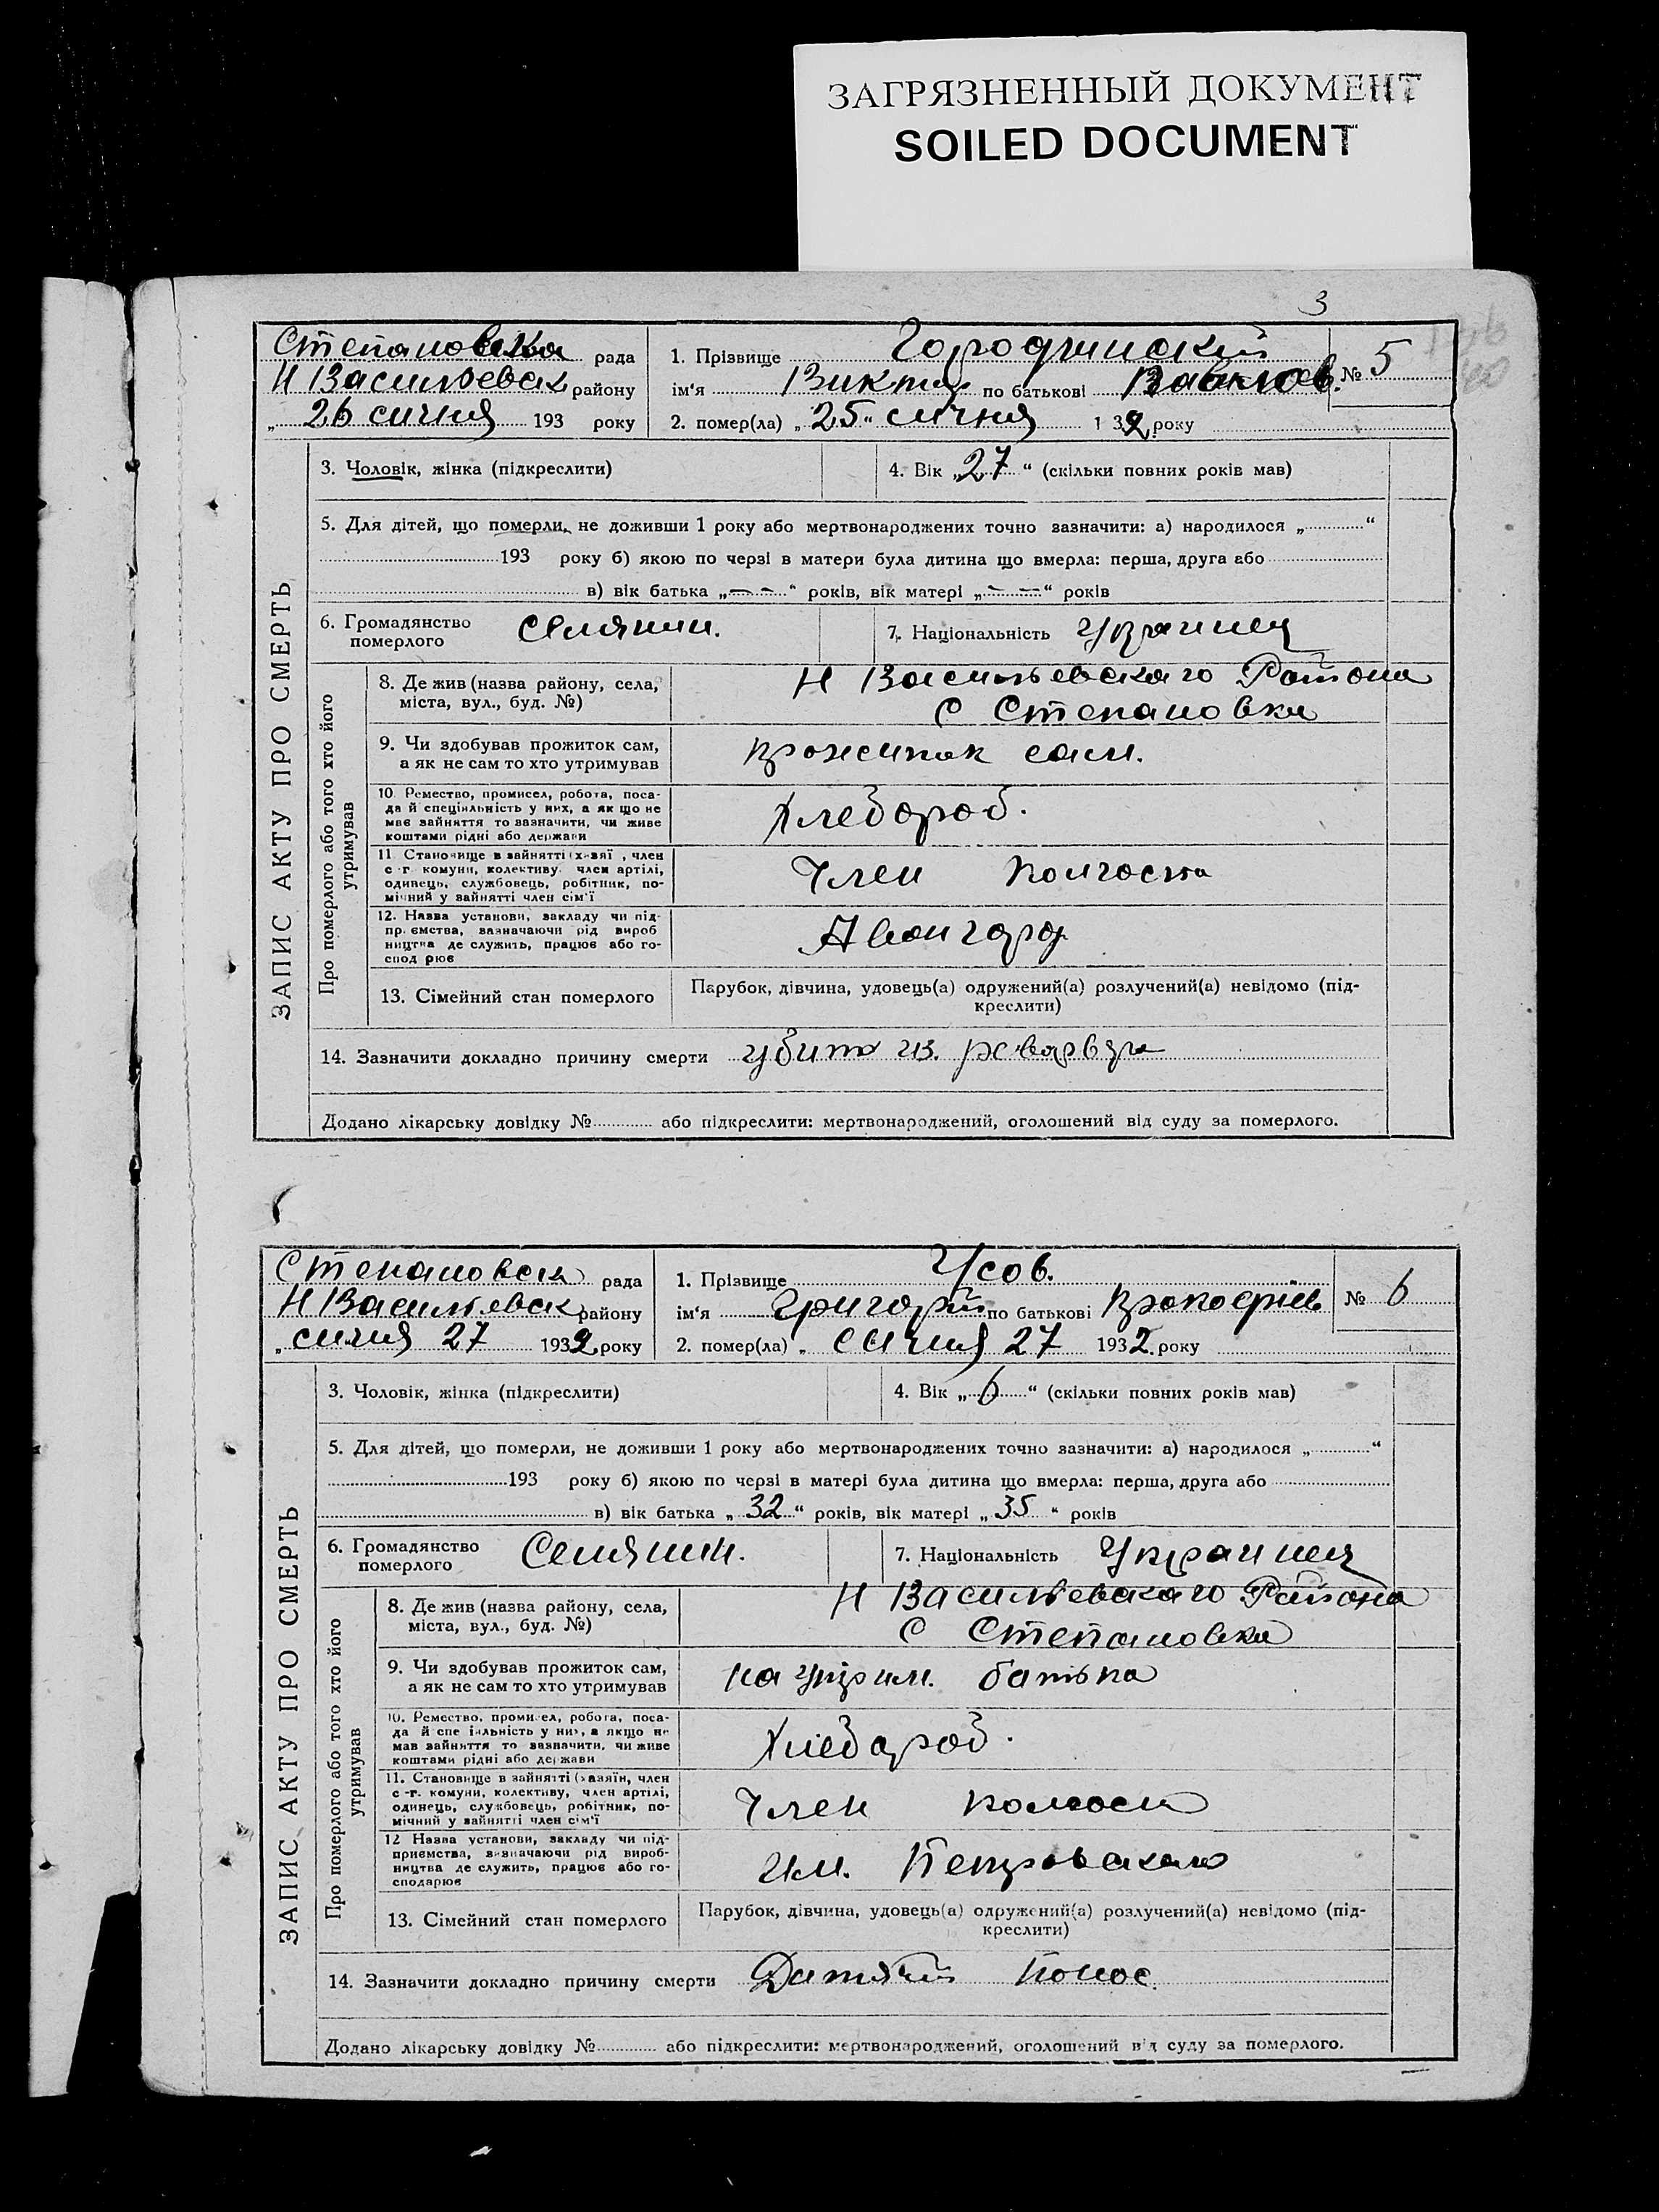 ЗАГРЯЗНЕННЫЙ ДОКУМЕНТ
SOILED DOCUMENT
3
Степановска рада
Н Васильевск району
„ 26 сичня 193 року
1. Прізвище Городчинский
ім'я Виктор по батькові
2. помер(ла) „ 25 " сичня 1 32 року
№ 5
ЗАПИС АКТУ ПРО СМЕРТЬ
3. Чоловік, жінка (підкреслити)
4. Вік „ 27 “ (скільки повних років мав)
5. Для дітей, що померли, не доживши 1 року або мертвонароджених точно зазначити: а) народилося „ “
193 року б) якою по черзі в матери була дитина що вмерла: перша, друга або
в) вік батька „— –“ років, вік матері „– –“ років
6. Громадянство
померлого
Селянин.
7. Національність Украинец
Про померлого або того хто його
утримував
8. Де жив (назва району, села,
міста, вул., буд. №)
Н Васильевскаго Района
С Степановка
9. Чи здобував прожиток сам,
а як не сам то хто утримував
прожиток сам.
10. Ремество, промисел, робота, поса-
да й спеціяльність у них, а як що не
має зайняття то зазначити, чи живе
коштами рідні або держави
Хлебороб.
11 Становище в зайнятті (хазяї , член
с г комуни, колективу член артілі,
одинець, службовець, робітник, по-
мічний у зайнятті член сім'ї
Член колгоспа
12. Назва установи, закладу чи під-
пр ємства, зазначаючи рід вироб
ництва де служить, працює або го-
спод рює
Авонгард
13. Сімейний стан померлого
Парубок, дівчина, удовець(а) одружений(а) розлучений(а) невідомо (під-
креслити)
14. Зазначити докладно причину смерти убито из. реварвера
Додано лікарську довідку № або підкреслити: мертвонароджений, оголошений від суду за померлого.
Степановска рада
Н Васильевск району
„ сичня 27 1932 року
1. Прізвище Усов.
ім'я Григорий по батькові Прокофиев
2. помер(ла) „ сичня 27 1932. року
№ 6
ЗАПИС АКТУ ПРО СМЕРТЬ
3. Чоловік, жінка (підкреслити)
4. Вік „ 6 “ (скільки повних років мав)
5. Для дітей, що померли, не доживши 1 року або мертвонароджених точно зазначити: а) народилося „ “
193 року б) якою по черзі в матері була дитина що вмерла: перша, друга або
в) вік батька „ 32 “ років, вік матері „ 35 “ років
6. Громадянство
померлого
Селянин.
7. Національність Украинец
Про померлого або того хто його
утримував
8. Де жив (назва району, села,
міста, вул., буд. №)
Н Васильевскаго Района
С Степановка
9. Чи здобував прожиток сам,
а як не сам то хто утримував
на утрим. батька
10. Ремество, промисел, робота, поса-
да й спе іяльність у них, а якщо не
мав зайняття то зазначити, чи живе
коштами рідні або держави
Хлебороб.
11. Становище в зайнятті (хазяїн, член
с -г. комуни, колективу, член артілі,
одинець, службовець, робітник, по-
мічний у зайнятті член сім'ї
Член колгосп
12 Назва установи, закладу чи під-
приємства, зазначаючи рід вироб-
ництва де служить, працює або го-
сподарює
Им. Петровскаго
13. Сімейний стан померлого
Парубок, дівчина, удовець(а) одружений(а) розлучений(а) невідомо (під-
креслити)
14. Зазначити докладно причину смерти Дитячий понос.
Додано лікарську довідку № або підкреслити: мертвонароджений, оголошений від суду за померлого.